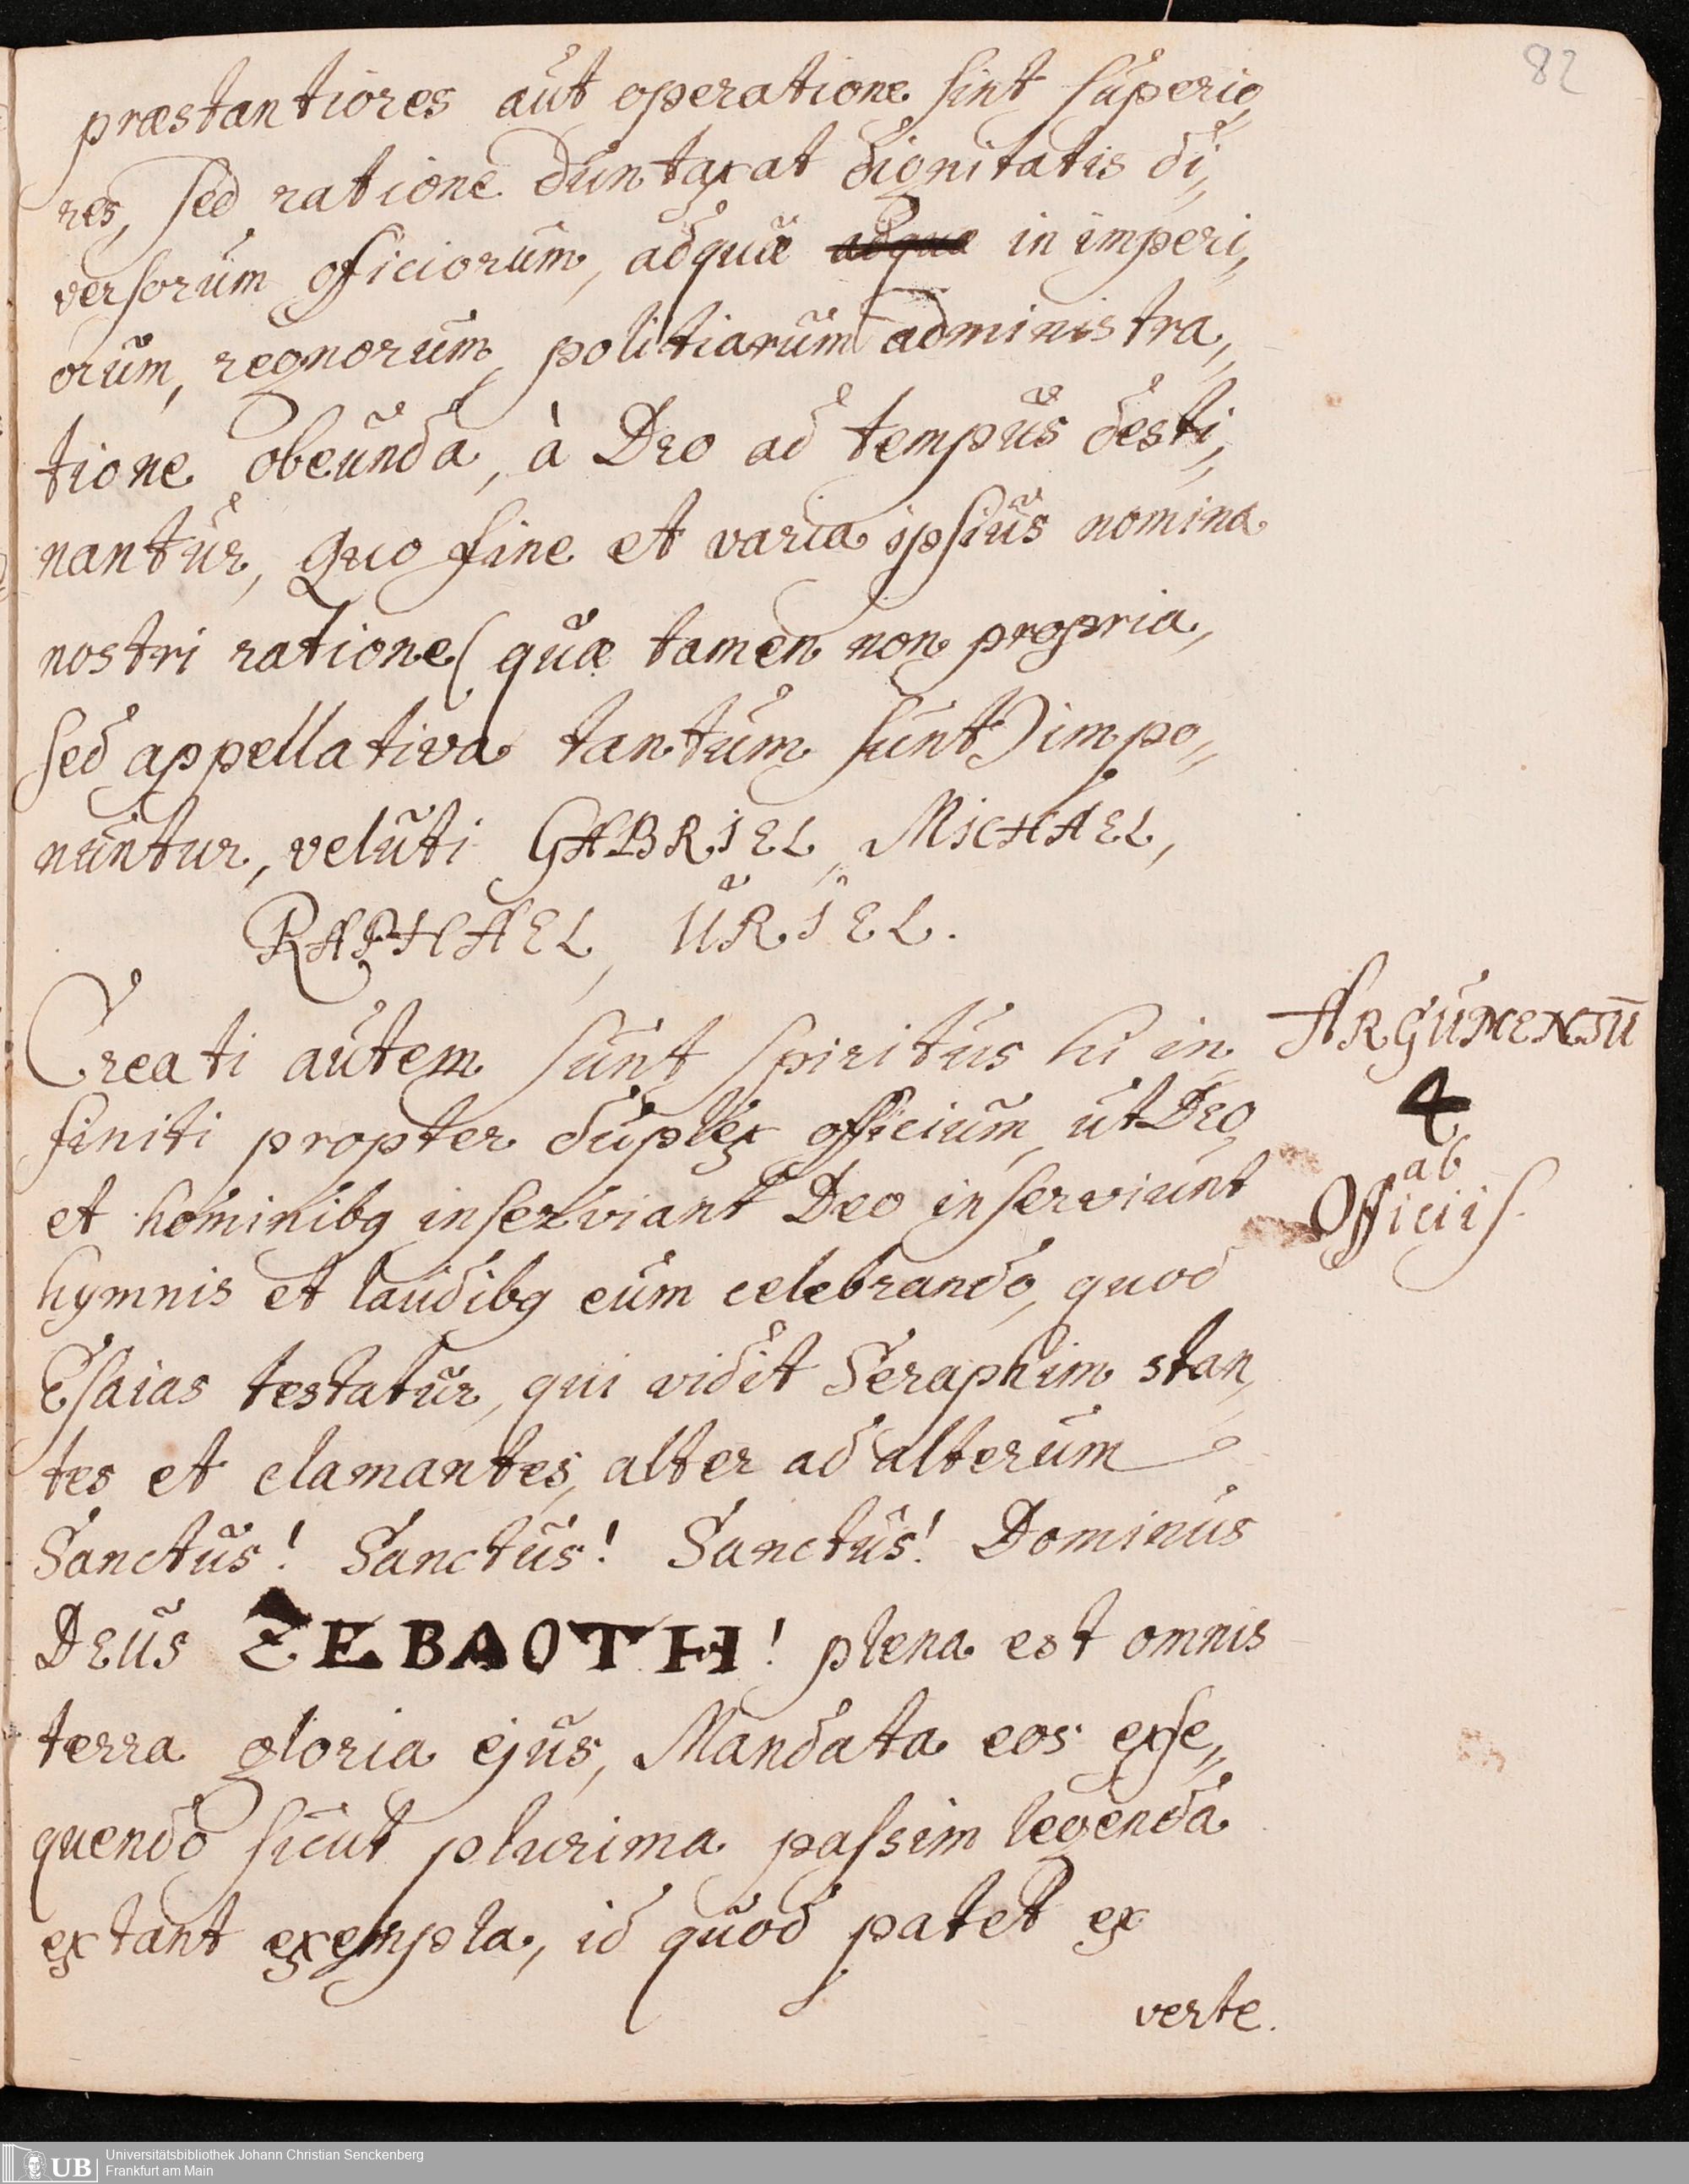 82
præstantiores aut operatione sint superio„
res, sed ratione duntaxat dignitatis di„
versorum officiorum, adquæ adquæ in imperi„
orum, regnorum, politiarum administra„
tione obeunda, à Deo ad tempus desti„
nantur, quo fine et varia ipsius nomina
nostri ratione (quæ tamen non propria,
sed appellativa tantum sunt) impo„
nuntur, veluti GABRIEL, MICHAEL,
RAPHAEL, URIEL.
Creati autem sunt spiritus hi in
finiti propter duplex officium, ut Deo
et hominibq inserviant Deo inserviunt
hymnis et laudibq eum celebrando, quod
Esaias testatur, qui vidit Seraphim stan„
tes et clamantes, alter ad alterum
Sanctus! Sanctus! Sanctus! Dominus
Deus ZEBAOTH! plena est omnis
terra gloria ejus, Mandata eos exse„
quendo sicut plurima passim legenda
extant exempla, id quod patet ex
verte.
ARGUMENTŪ
4
ab
Officiis.
UB
Universitätsbibliothek Johann Christian Senckenberg
Frankfurt am Main